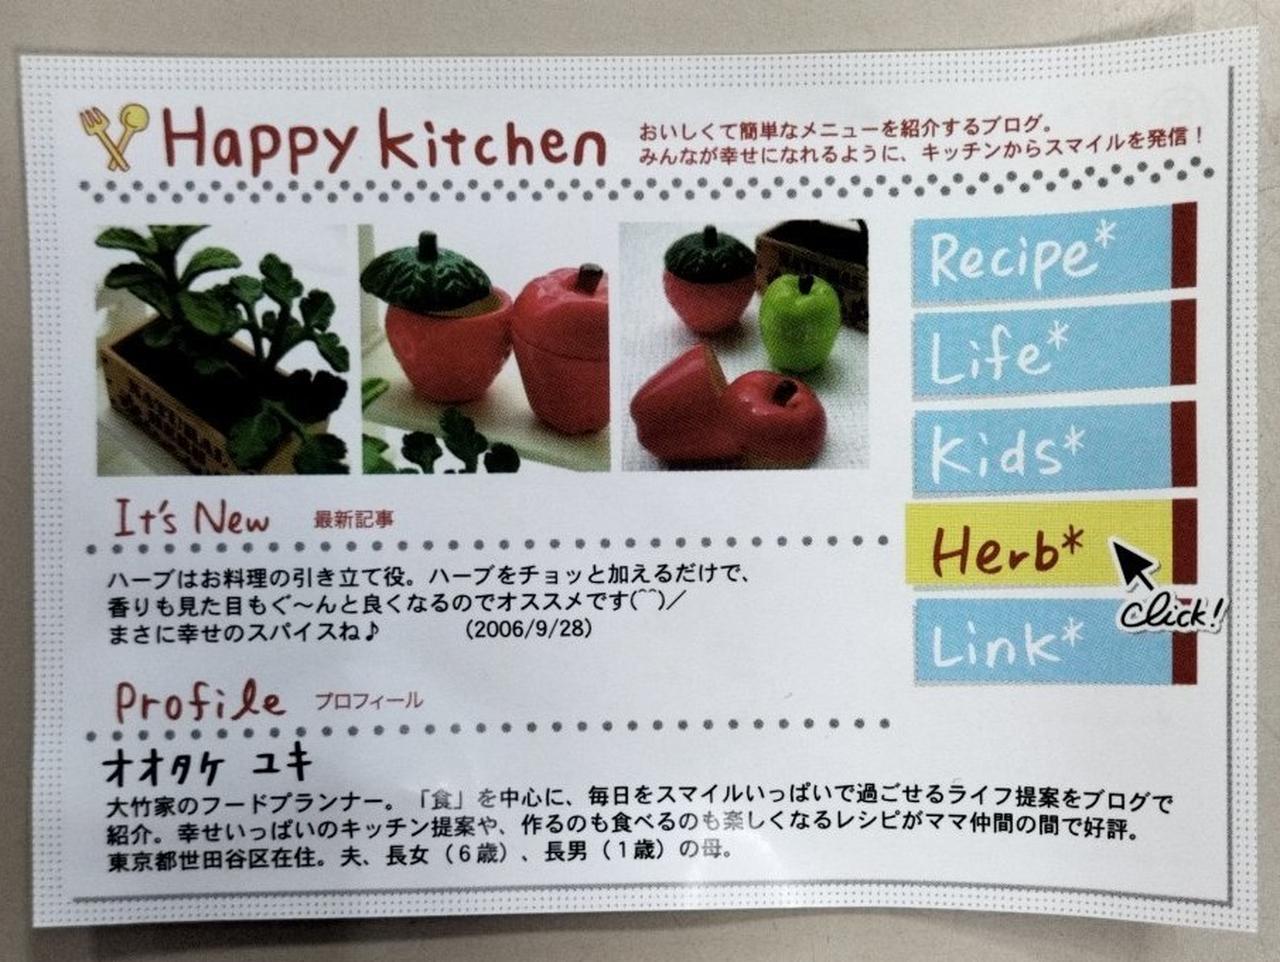 Happy kitchen
おいしくて簡単なメニューを紹介するブログ。
みんなが幸せになれるように、キッチンからスマイルを発信！
Recipe*
Life*
Kids*
Herb*
Click!
Link*
It's New 最新記事
ハーブはお料理の引き立て役。ハーブをチョッと加えるだけで、
香りも見た目もぐ〜んと良くなるのでオススメです(⌒⌒)／
まさに幸せのスパイスね♪ (2006/9/28)
Profile プロフィール
オオタケ ユキ
大竹家のフードプランナー。「食」を中心に、毎日をスマイルいっぱいで過ごせるライフ提案をブログで
紹介。幸せいっぱいのキッチン提案や、作るのも食べるのも楽しくなるレシピがママ仲間の間で好評。
東京都世田谷区在住。夫、長女（６歳）、長男（１歳）の母。